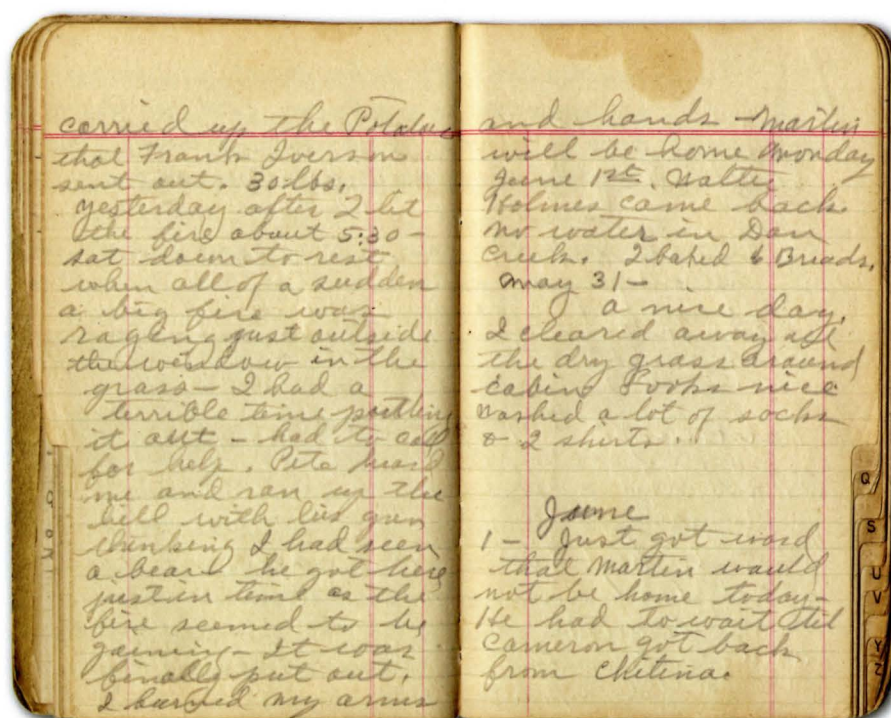 carried up the Potatoes
that Frank Iverson
sent out. 30 lbs.
yesterday after I lit
the fire about 5:30 -
sat down to rest
when all of a sudden
a big fire was
raging just outside
the window in the
grass - I had a
terrible time putting
it out - had to call
for help. Pete heard
me and ran up the
hill with his gun
thinking I had seen
a bear he got here
just in time as the
fire seemed to be
gaining - It was
finally put out.
I burned my arms
and hands - Martin
will be home Monday
June 1st. Walter
Holmes came back
no water in Dan
Creek. I baked 6 Breads.
May 31 -
a nice day.
I cleared away all
the dry grass around
cabin Looks nice
washed a lot of socks
& 2 shirts.
June
1 - Just got word
that Martin would
not be home today -
He had to wait till
Cameron got back
from Chitina.
Q
S
U
V
Y
Z